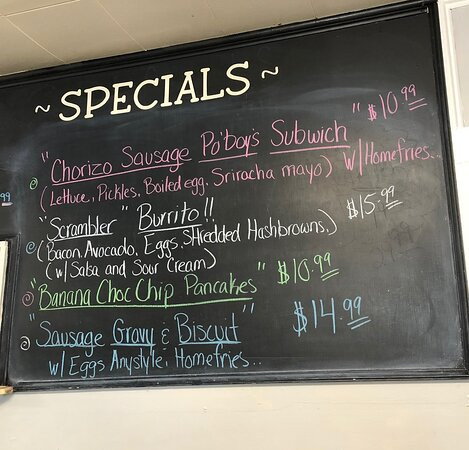 ~ SPECIALS ~
"Chorizo Sausage Po'boy's Subwich" $10.99
(Lettuce, Pickles, Boiled egg, Sriracha mayo) w/Homefries...
"Scrambler" Burrito!! $15.99
(Bacon, Avocado, Eggs, SHredded Hashbrowns,)
(w/ Salsa and Sour Cream)
"Banana Choc Chip Pancakes" $10.99
"Sausage Gravy & Biscuit" $14.99
w/ Eggs Anystyle, Homefries..
99